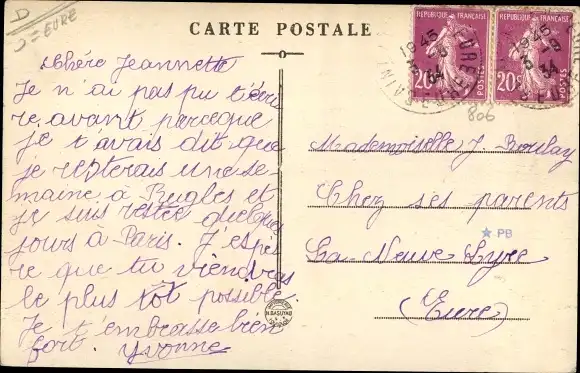 D
D = EURE
CARTE POSTALE
Chére Jeannette
Je n'ai pas pu t'écri
re avant parceque
je t'avais dit que
je resterais une se-
maine à Rugles et
je suis restée quelque
jours à Paris. J'espè
re que tu viendras
le plus tôt possible.
Je t'embrasse bien
fort. Yvonne
REPUBLIQUE FRANÇAISE
20c
POSTES
REPUBLIQUE FRANÇAISE
20c
POSTES
19 45
34
EURE
806
Mademoiselle J. Boulay
Chez ses parents
PB
La Neuve Lyre
(Eure)